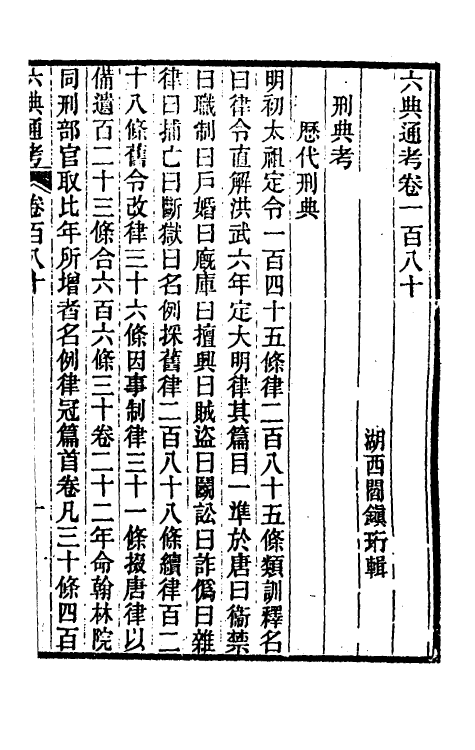 六典通考卷一百八十
湖西閻鎮珩輯
刑典考
歷代刑典
明初太祖定令一百四十五條律二百八十五條類訓釋名
曰律令直解洪武六年定大明律其篇目一準於唐曰衞禁
曰職制曰戶婚曰廐庫曰擅興曰賊盜曰鬭訟曰詐僞曰雜
律曰捕亡曰斷獄曰名例採舊律二百八十八條續律百二
十八條舊令改律三十六條因事制律三十一條掇唐律以
備遺百二十三條合六百六條三十卷二十二年命翰林院
同刑部官取比年所增者名例律冠篇首卷凡三十條四百
六典通考 卷百八十 一